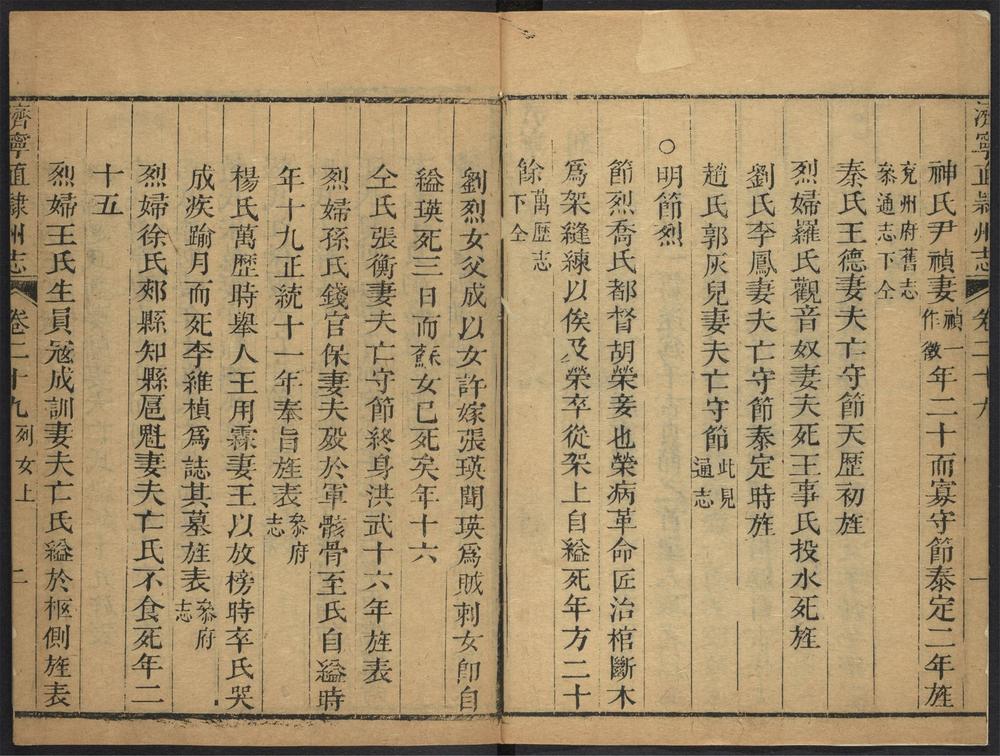 濟寧直隸州志 卷二十九 一
神氏尹禎妻禎一作徵年二十而寡守節泰定二年旌
兗州府舊志叅通志下仝
秦氏王德妻夫亡守節天歷初旌
烈婦羅氏觀音奴妻夫死王事氏投水死旌
劉氏李鳳妻夫亡守節泰定時旌
趙氏郭灰兒妻夫亡守節此見通志
○明節烈
節烈喬氏都督胡榮妾也榮病革命匠治棺斷木
爲架縫練以俟及榮卒從架上自縊死年方二十
餘萬歷志下仝
劉烈女父成以女許嫁張瑛聞瑛爲賊刺女卽自
縊瑛死三日而蘇女已死矣年十六
仝氏張衡妻夫亡守節終身洪武十六年旌表
烈婦孫氏錢官保妻夫歿於軍骸骨至氏自縊時
年十九正統十一年奉旨旌表叅府志
楊氏萬歷時舉人王用霖妻王以放榜時卒氏哭
成疾踰月而死李維楨爲誌其墓旌表叅府志
烈婦徐氏郟縣知縣扈魁妻夫亡氏不食死年二
十五
烈婦王氏生員寇成訓妻夫亡氏縊於柩側旌表
濟寧直隸州志 卷二十九 列女上 二